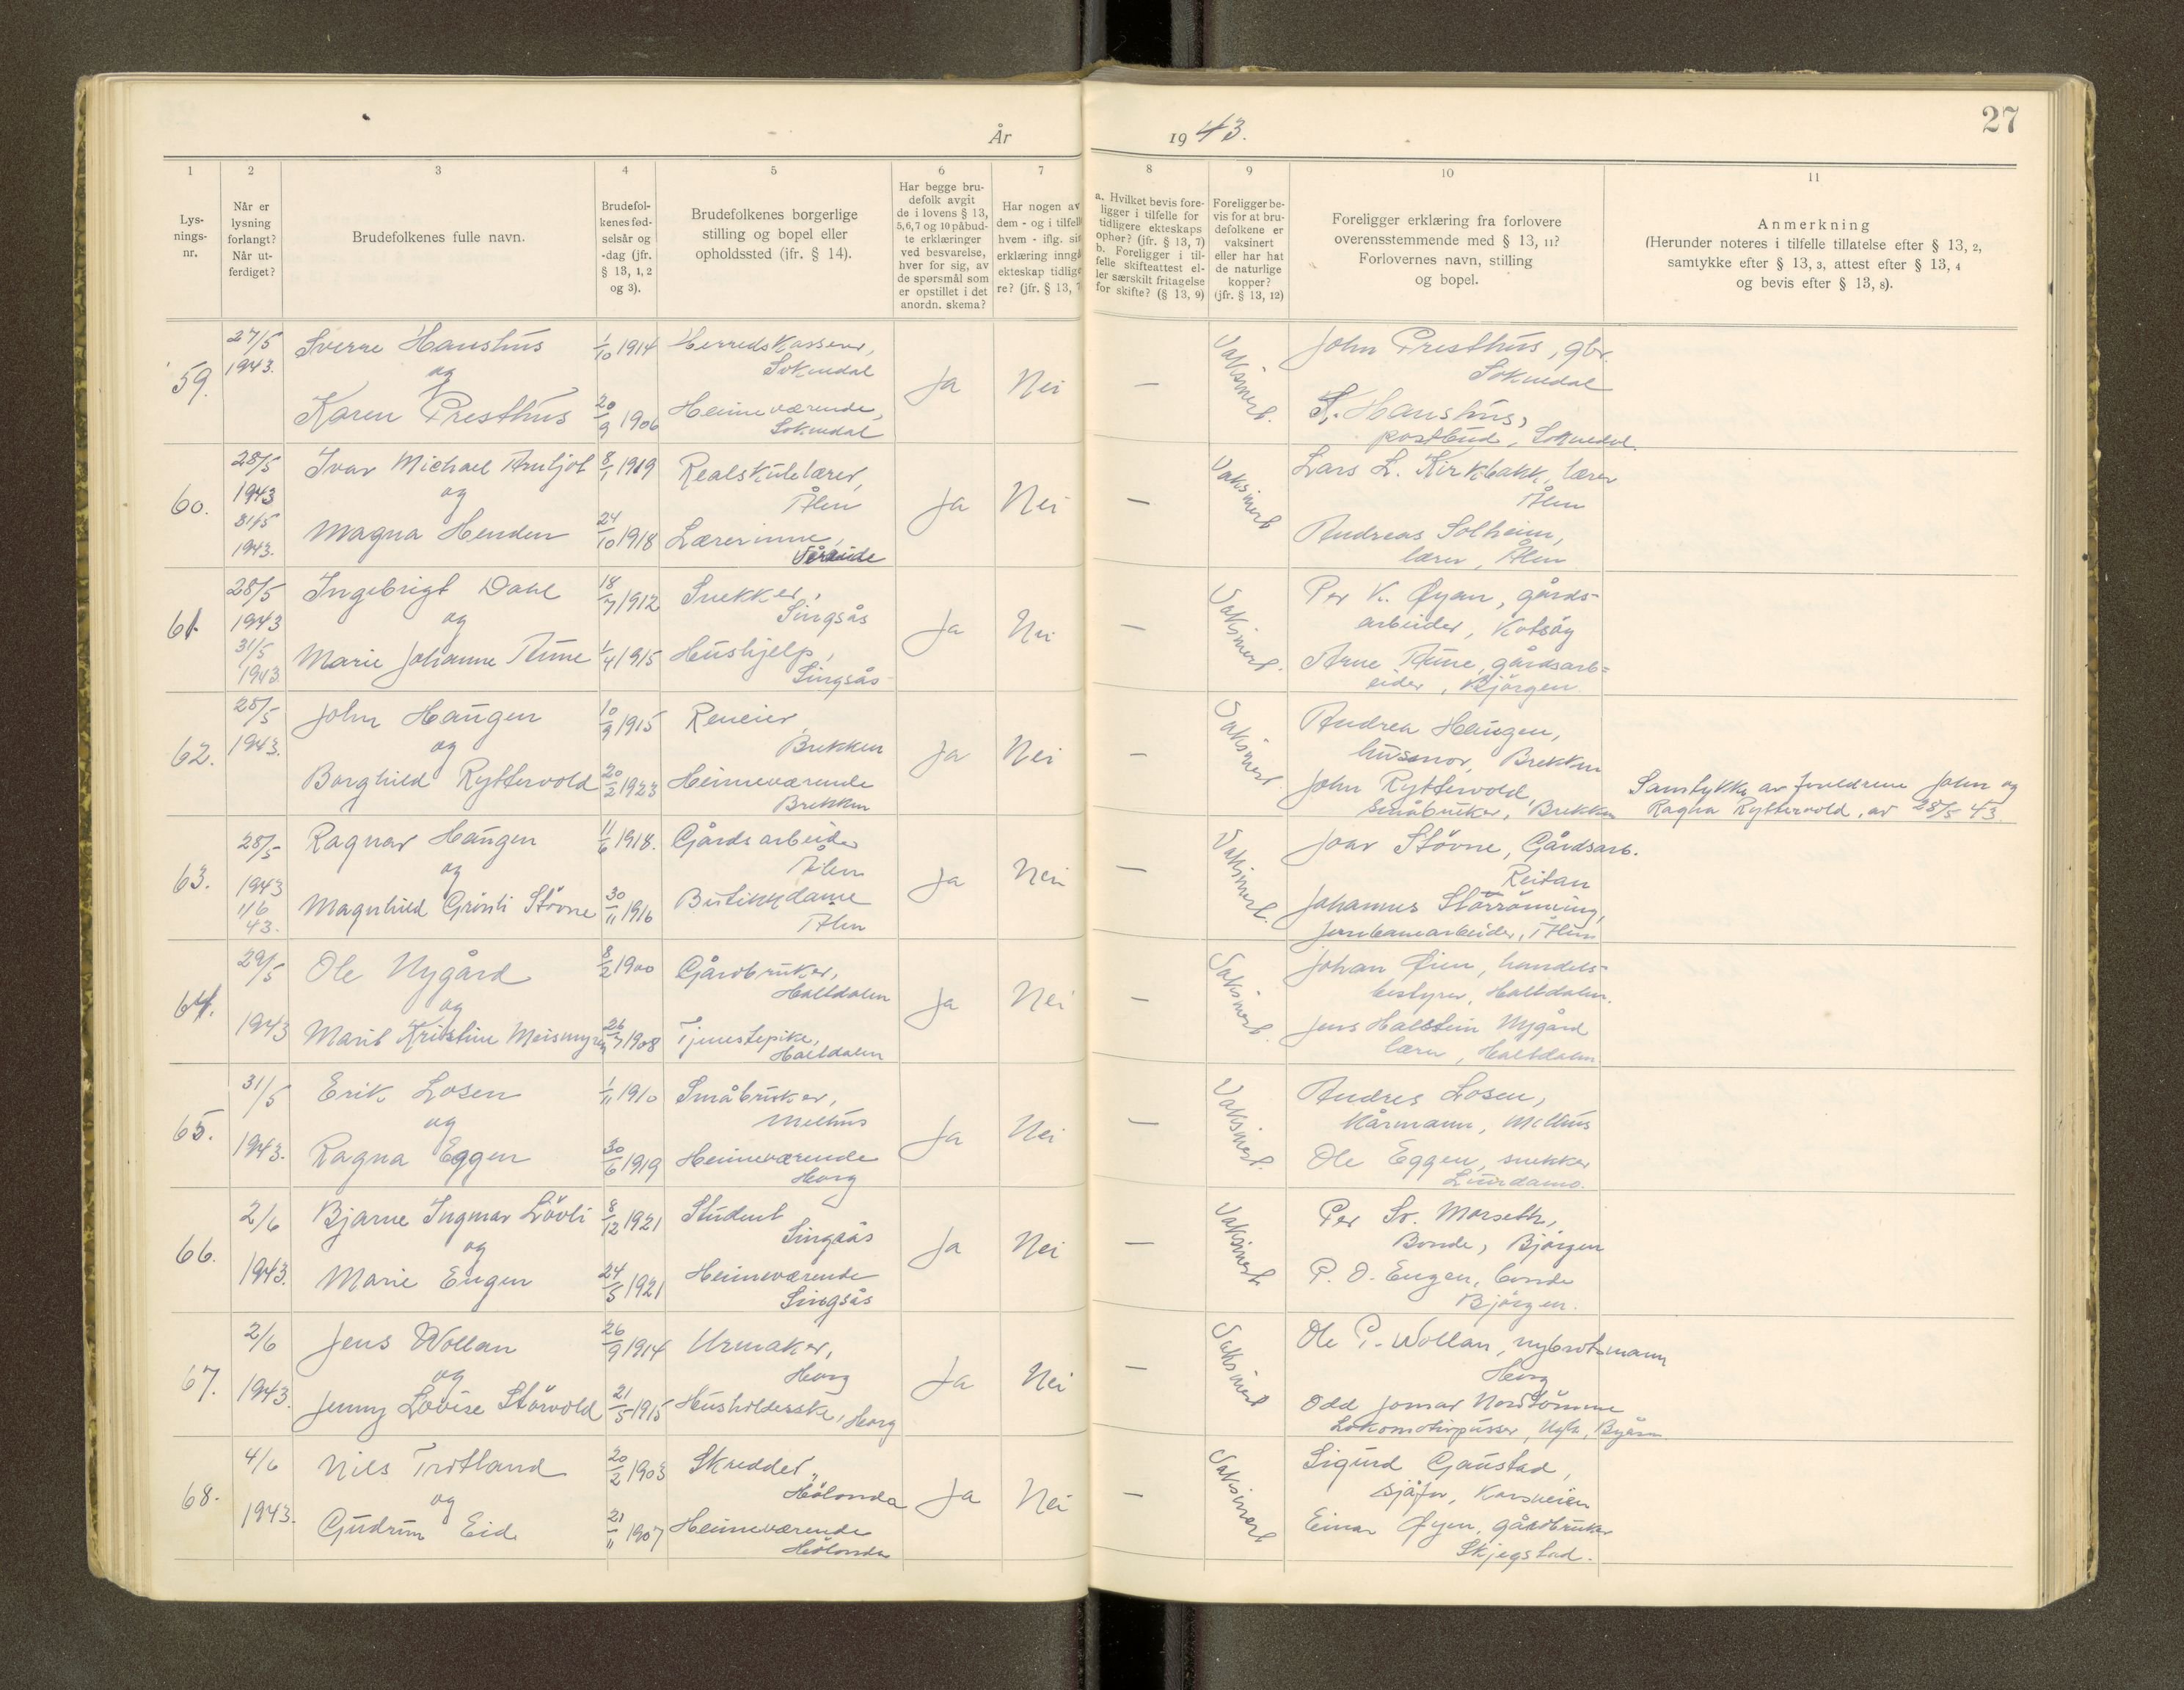 27
År 1943.
1 2 3 4 5 6 7 8 9 10 11
Lys-
nings-
nr.
Når er
lysning
forlangt?
Når ut-
ferdiget?
Brudefolkenes fulle navn.
Brudefol-
kenes fød-
selsår og
-dag (jfr.
§ 13, 1, 2
og 3).
Brudefolkenes borgerlige
stilling og bopel eller
opholdssted (jfr. § 14).
Har begge bru-
defolk avgit
de i lovens § 13,
5,6,7 og 10 påbud-
te erklæringer
ved besvarelse,
hver for sig, av
de spørsmål som
er opstillet i det
anordn. skema?
Har nogen av
dem - og i tilfell
hvem - iflg. sin
erklæring inngå
ekteskap tidlige
re? (jfr. § 13, 7
a. Hvilket bevis fore-
ligger i tilfelle for
tidligere ekteskaps
ophør? (jfr. § 13, 7)
b. Foreligger i til-
felle skifteattest el-
ler særskilt fritagelse
for skifte? (§ 13, 9)
Foreligger be-
vis for at bru-
defolkene er
vaksinert
eller har hat
de naturlige
kopper?
(jfr. § 13, 12)
Foreligger erklæring fra forlovere
overensstemmende med § 13, 11?
Forlovernes navn, stilling
og bopel.
Anmerkning
(Herunder noteres i tilfelle tillatelse efter § 13, 2,
samtykke efter § 13, 3, attest efter § 13, 4
og bevis efter § 13, 8).
59.
27/5
1943.
Sverre Haushus
og
Karen Presthus
1/10 1914
20/9 1906
Herredskasserer,
Soknedal
Heimeværende,
Soknedal
Ja
Nei
—
Vaksinert.
John Presthus, gbr.
Soknedal
S. Haushus,
postbud, Soknedal.
60.
28/5
1943
31/5
1943.
Ivar Michael Arnljot
og
Magna Henden
8/1 1919
24/10 1918
Realskulelærer,
Ålen
Lærerinne,
Ja
Nei
—
Vaksinert
Lars L. Kirkbakk, lærer
Ålen
Andreas Solheim,
lærer, Ålen
61.
28/5
1943
31/5
1943
Ingebrigt Dahl
og
Marie Johanne Aune
18/7 1912
1/4 1915
Snekker,
Singsås
Hushjelp,
Singsås
Ja
Nei
—
Vaksinert.
Per K. Øyan, gårds-
arbeider, Kotsøy
Arne Aune, gårdsarb-
eider, Bjørgen
62.
28/5
1943.
John Haugen
og
Borghild Ryttervold
10/9 1915
20/2 1923
Reneier,
Brekken
Heimeværende
Brekken
Ja
Nei
—
Vaksinert
Andrea Haugen,
husmor, Brekken
John Ryttervold,
småbruker, Brekken
Samtykke av foreldrene John og
Ragna Ryttervold, av 28/5 43.
63.
28/5
1943
1/6
43.
Ragnar Haugen
og
Magnhild Grinli Støvne
11/6 1918.
30/11 1916
Gårdsarbeider
Ålen
Butikkdame
Ålen
Ja
Nei
—
Vaksinert.
Joar Støvne, Gårdsarb.
Reitan
Johannes Storrønning,
jernbanearbeider, Ålen
64.
29/5
1943
Ole Nygård
og
Marit Kristine Meismyren
8/2 1900
26/7 1908
Gårdbruker,
Haltdalen
Tjenestepike,
Haltdalen
Ja
Nei
—
Vaksinert.
Johan Øien, handels-
bestyrer, Haltdalen.
Jens Halstein Nygård
lærer, Haltdalen.
65.
31/5
1943.
Erik Losen
og
Ragna Eggen
1/11 1910
30/6 1919
Småbruker,
Melhus
Heimeværende
Horg
Ja
Nei
—
Vaksinert.
Andres Losen,
Kårmann, Melhus
Ole Eggen, snekker
Lundamo.
66.
2/6
1943.
Bjarne Ingmar Løvli
og
Marie Engen
8/12 1921
24/5 1921
Student
Singsås
Heimeværende
Singsås
Ja
Nei
—
Vaksinert.
Per Sv. Morseth,
Bonde, Bjørgen
P. O. Engen, bonde
Bjørgen.
67.
2/6
1943.
Jens Wollan
og
Jenny Lovise Størvold
26/9 1914
21/5 1915
Urmaker,
Horg
Husholderske, Horg
Ja
Nei
—
Vaksinert
Ole P. Wollan, nybrotsmann
Horg
Odd Jomar Nordtømme
Lokomotivpusser, Ugla, Byåsen
68.
4/6
1943.
Nils Trotland
og
Gudrun Eid
20/2 1903
21/11 1907
Skredder,
Hølonda
Heimeværende
Hølonda
Ja
Nei
—
Vaksinert
Sigurd Gaustad,
sjåfør, Korsveien
Einar Øyen, gårdbruker
Skjegstad.